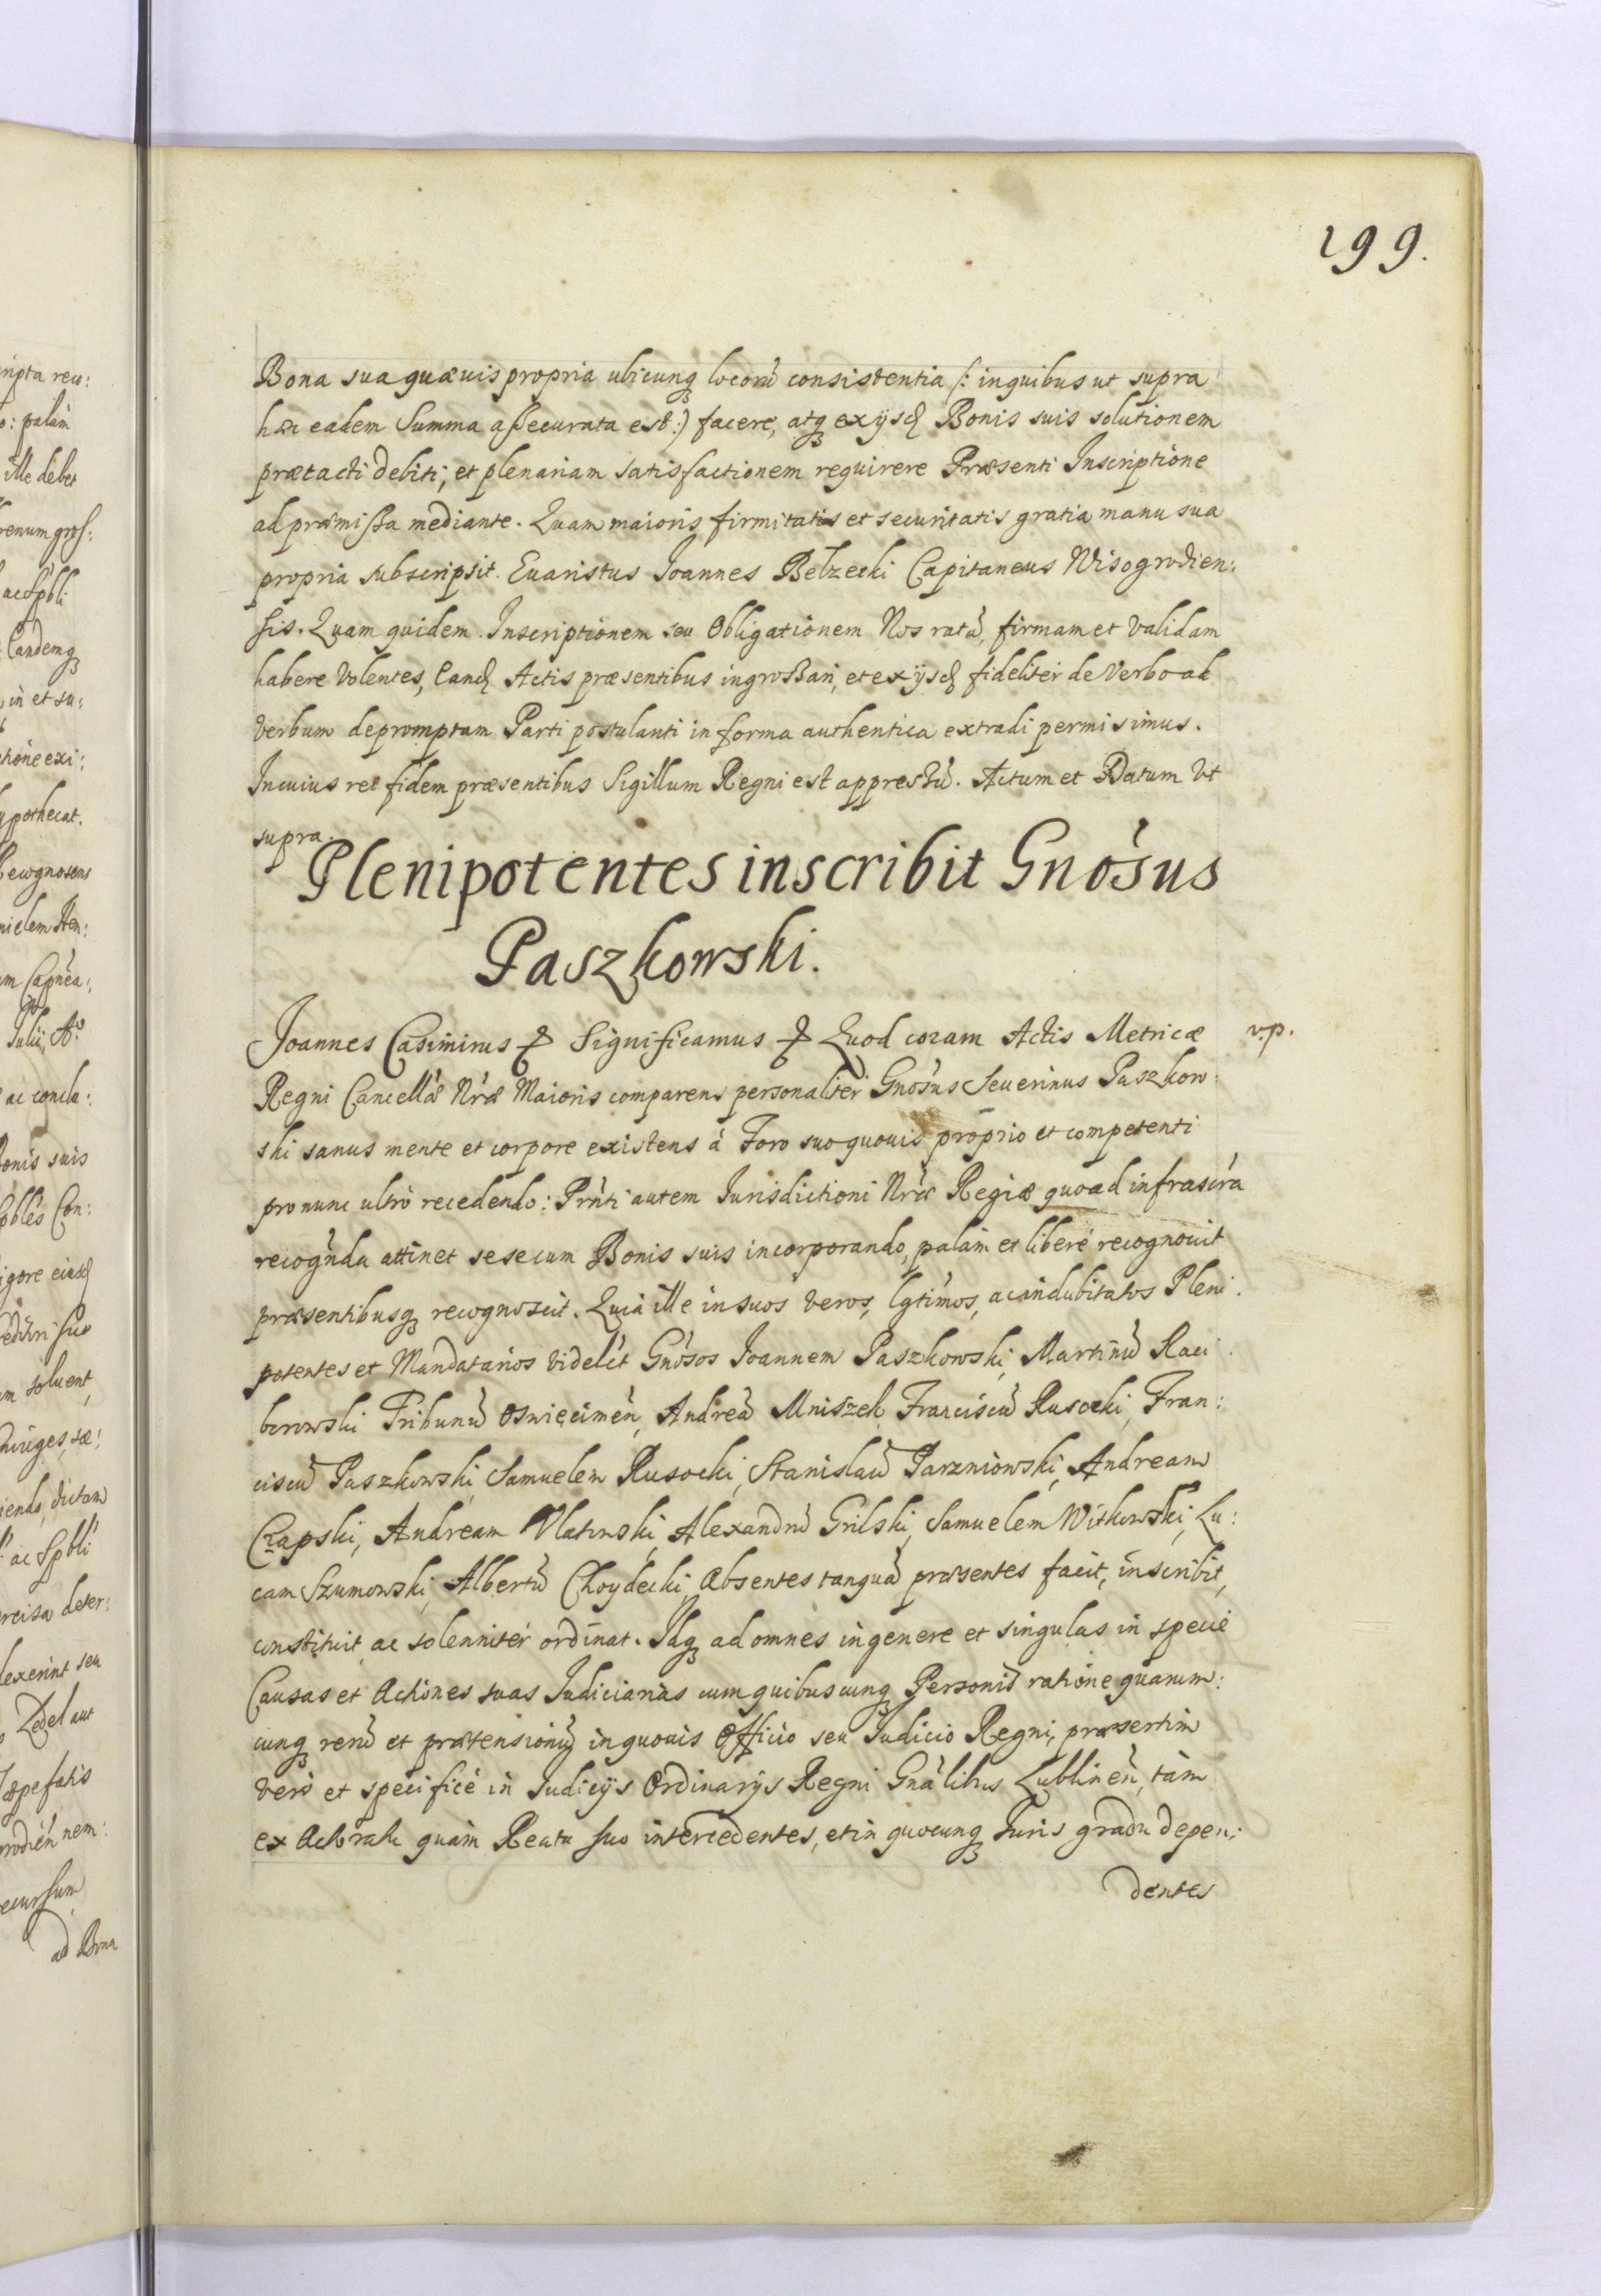 199.
Bona sua quævis propria ubicunq locorũ consistentia /: in quibus ut supra
hæc eadem Summa assecurata est :/ facere, atq ex ijsd Bonis suis solutionem
prætacti debiti, et plenariam satisfactionem requirere Præsenti Inscriptione
ad præmissa mediante. Quam maioris firmitatis et securitatis gratia manu sua
propria subscripsit. Evaristus Joannes Bełzecki Capitaneus Wisogrodien:
sis. Quam quidem Inscriptionem seu Obligationem Nos ratã, firmam et validam
habere volentes, Eand Actis præsentibus ingrossari, et ex ijsd fideliter de Verbo ad
verbum depromptam Parti postulanti in forma authentica extradi permisimus.
In cuius rei fidem præsentibus Sigillum Regni est appressũ. Actum et Datum Ut
supra.
Plenipotentes inscribit Gnosus
Paszkowski.
Joannes Casimirus & Significamus & Quod coram Actis Metricæ
v.p.
Regni Cancellæ Nræ Maioris comparens personaliter Gnosus Severinus Paszkow:
ski sanus mente et corpore existens à Foro suo quovis proprio et competenti
pro nunc ultro recedendo: Prnti autem Jurisdictioni Nræ Regiæ quoad infrascra
recognda attinet sese cum Bonis suis incorporando, palàm et liberè recognovit
præsentibusq recognoscit. Quia ille in suos veros, lgtimos, ac indubitatos Pleni:
potentes et Mandatarios videlt Gnosos Joannem Paszkowski, Martinũ Raci:
borowski Tribunũ Osniecimen, Andreã Mniszek, Franciscũ Rusocki, Fran:
ciscũ Paszkowski, Samuelem Rusocki, Stanislaũ Parzniowski, Andream
Czapski, Andream Ulatowski, Alexandrũ Grilski, Samuelem Witkowski, Lu:
cam Szumowski, Albertũ Choydecki, Absentes tanquã præsentes facit, inscribit,
constituit ac solenniter ordinat. Idq ad omnes in genere et singulas in specie
Causas et Actiones suas Judiciarias cum quibuscunq Personis ratione quarum:
cunq rerũ et prætensionũ in quovis Officio seu Judicio Regni, præsertim
verò et specificè in Judicijs Ordinarijs Regni Gnalibus Lublinen, tàm
ex Actoratu quàm Reatu suo intercedentes, et in quocunq Juris gradu depen:
dentes